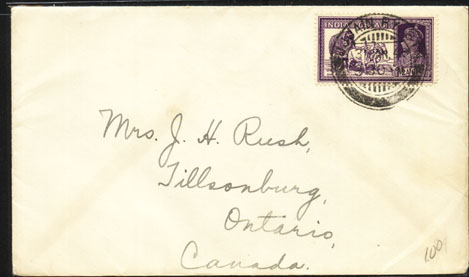 INDIA POSTAGE
Mrs. J. H. Rush,
Tillsonburg,
Ontario,
Canada.
100